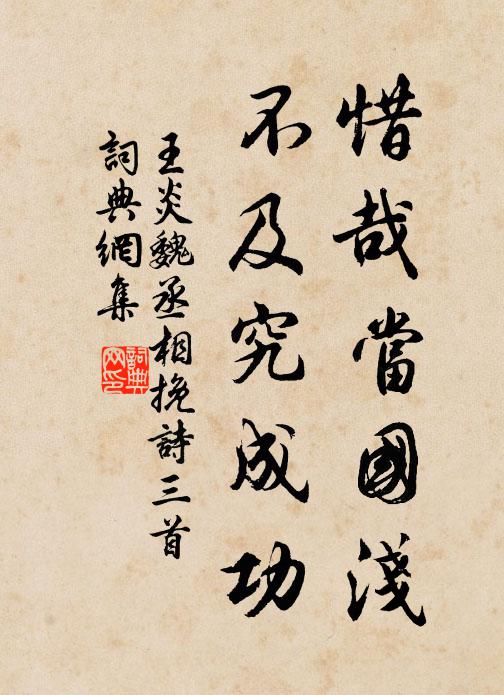 惜哉當國淺
不及究成功
王炎魏丞相挽詩三首
詞典網集
詞典網印